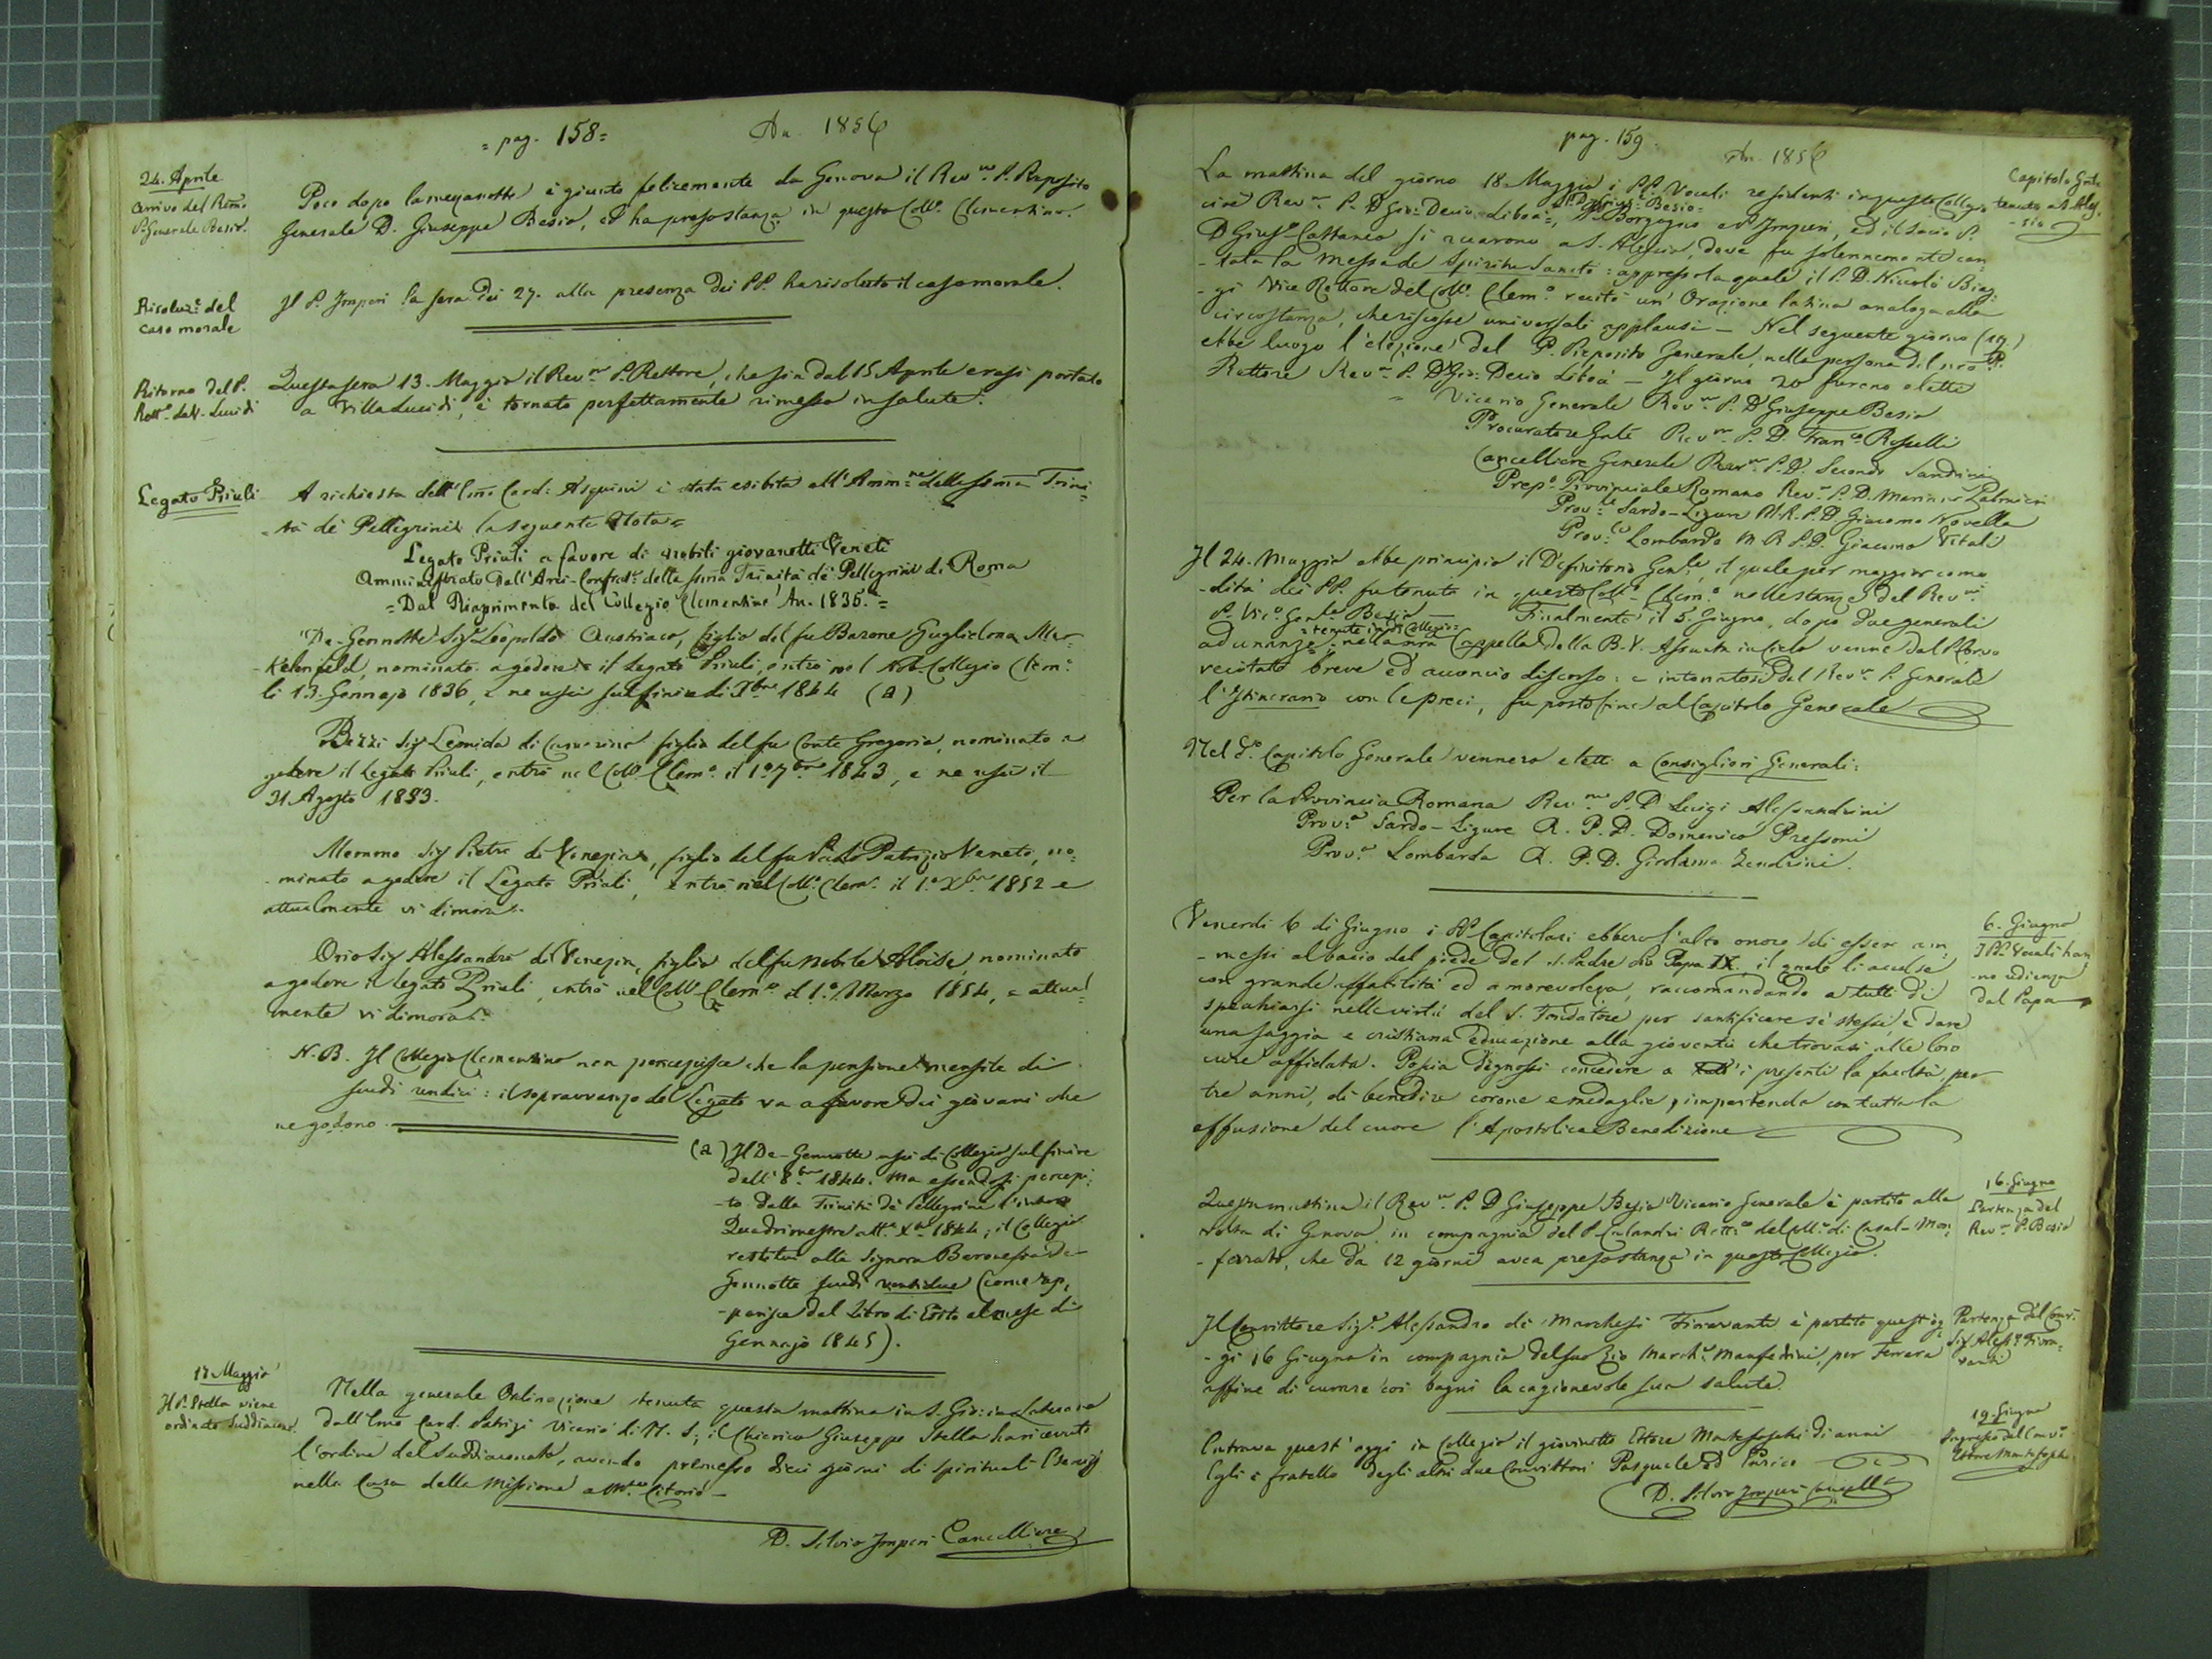 = pag. 158 =
An. 1856
24. Aprile
Arrivo del Rmo
P. Generale Besio.
Poco dopo la mezzanotte è giunto felicemente da Genova il Revmo P. Preposito
Generale D. Giuseppe Besio, ed ha preso stanza in questo Collo Clementino.
Risoluze del
caso morale
Il P. Imperi la sera dei 27. alla presenza dei PP. ha risoluto il caso morale.
Ritorno del P.
Rette da V. Lucidi
Questa sera 13. Maggio il Revmo P. Rettore, che sin dal 15 Aprile erasi portato
a Villa Lucidi, è tornato perfettamente rimesso in salute.
Legato Priuli
A richiesta dell'Emo Card: Asquini è stata esibita all'Ammne della Ssma Trini=
=tà de' Pellegrini la seguente Nota=
Legato Priuli a favore di nobili giovanetti Veneti
Amministrato dall'Arci-Confrata della ssma Trinità de' Pellegrini di Roma
=Dal Riaprimento del Collegio Clementino An. 1835.=
De-Gennotte Sigr Leopoldo Austriaco, figlio del fu Barone Guglielmo Mer-
-kelnfeld, nominato a godere il Legato Priuli, entrò nel Nob. Collegio Clemo
li 13. Gennajo 1836, e ne uscì sul finire di Xbre 1844 (a)
Bezzi Sigr Leonida di figlio del fu Conte Gregorio, nominato a
godere il Legato Priuli, entrò nel Collo Clemo il 1o 7bre 1843, e ne uscì il
31 Agosto 1853.
Memmo Sigr Pietro di Venezia, figlio del fu Paolo Patrizio Veneto, no=
-minato a godere il Legato Priuli, entrò nel Collo Clemo il 1.o Xbre 1852 e
attualmente vi dimora.
Orio Sigr Alessandro di Venezia, figlio del fu Nobile Aloise, nominato
a godere il Legato Priuli, entrò nel Collo Clemo il 1.o Marzo 1854, e attual=
mente vi dimora.
N. B. Il Collegio Clementino non percepisce che la pensione mensile di
scudi undici: il sopravvanzo del Legato va a favore dei giovani che
ne godono.
(a) Il De-Gennotte uscì di Collegio sul finire
dell' 8bre 1844. Ma essendosi percepi=
-to dalla Trinità de' Pellegrini l'intero
Quadrimestre a tto Xbre 1844, il Collegio
restituì alla Signora Baronessa De
Gennotte scudi ventidue (come ap=
-parisce dal Libro di Esito al mese di
Gennajo 1845).
17 Maggio
Il P. Stella viene
ordinato Suddiacono.
Nella generale Ordinazione tenuta questa mattina in S. Gio: in Laterano
dall'Emo Card. Patrizi Vicario di N. S., il Chierico Giuseppe Stella ha ricevuto
l'ordine del Suddiaconato, avendo premesso dieci giorni di spirituali Esercizj
nella Casa della Missione a Mte Citorio—
D. Silvio Imperi Cancelliere
pag. 159.
An. 1856
Capitolo Gnle
tenuto a S. Ales=
-sio
La mattina del giorno 18 Maggio i PP. Vocali residenti in questo Collegio
cioè Revmo P. D. Gio: Decio Libois, P. D. Gius. Besio= P. Borgogno e P. Imperi, ed il Socio P.
D. Giuse Cattaneo si recarono a S. Alessio, dove fu solennemente can=
-tata la Messa de Spiritu Sancto: appresso la quale il P. D. Niccolò Biag=
-gi Vice Rettore del Collo Clemo recitò un'Orazione latina analoga alla
circostanza, che riscosse universali applausi— Nel seguente giorno (19)
ebbe luogo l'elezione del P. Preposito Generale, nella persona del nro P.
Rettore Revmo P. D. Gio: Decio Libois— Il giorno 20 furono eletti
Vicario Generale Revmo P. D. Giuseppe Besio
Procuratore Gnle Revmo P. D. Franco Rosselli
Cancelliere Generale Revmo P. D. Secondo Sandrini
Prepo Provinciale Romano Revmo P. D. Marino Palmieri
Provle Sardo-Ligure M. R. P. D. Giacomo Novella
Provle Lombardo M R P. D. Giacomo Vitali
Il 24. Maggio ebbe principio il Definitorio Genle, il quale per maggior como=
-dità dei PP. fu tenuto in questo Collo Clemo nelle stanze del Revmo
P. Vico Gnle Besio— Finalmente il 5. Giugno, dopo due generali
adunanze =tenute in qo Collegio= nella nra Cappella della B. V. Assunta in Cielo venne dal
recitato breve ed acconcio discorso: e intonatosi dal Revmo P. Generale
l'Itinerario con le preci, fu posto fine al Capitolo Generale
Nel do Capitolo Generale vennero eletti a Consiglieri Generali:
Per la Provincia Romana Revmo P. D. Luigi Alessandrini
Prova Sardo-Ligure R. P. D. Domenico Pressoni
Prova Lombarda R. P. D. Girolamo Zendrini.
6. Giugno
I PP. Vocali han=
-no udienza
dal Papa
Venerdì 6 di Giugno i PP. Capitolari ebbero l'alto onore di esser am=
-messi al bacio del piede del S. Padre Pio Papa IX. il quale li accolse
con grande affabilità ed amorevolezza, raccomandando a tutti di
specchiarsi nelle virtù del S. Fondatore per santificare sè stessi e dare
una saggia e cristiana educazione alla gioventù che trovasi alle loro
cure affidata. Poscia degnossi concedere a tutti i presenti la facoltà, per
tre anni, di benedire corone e medaglie, impartendo con tutta la
effusione del cuore l'Apostolica Benedizione
16. Giugno
Partenza del
Revmo P. Besio
Questa mattina il Revmo P. D. Giuseppe Besio Vicario Generale è partito alla
volta di Genova, in compagnia del P. Calandri Rettre del Collo di Casal-Mon=
-ferrato, che da 12 giorni avea preso stanza in questo Collegio.
Partenza del Convre
Sigr Aless. Fiora=
vanti
Il Convittore Sigr Alessandro dei Marchesi Fioravanti è partito quest'og=
-gi 16 Giugno in compagnia del suo Zio Marche Manfredini, per Ferrara
affine di curare coi bagni la cagionevole sua salute.
19. Giugno
Ingresso del Convre
Ettore Montefoschi
Entrava quest'oggi in Collegio il giovinetto Ettore Montefoschi di anni
Egli è fratello degli altri due Convittori Pasquale ed Enrico
D. Silvio Imperi Cancelle